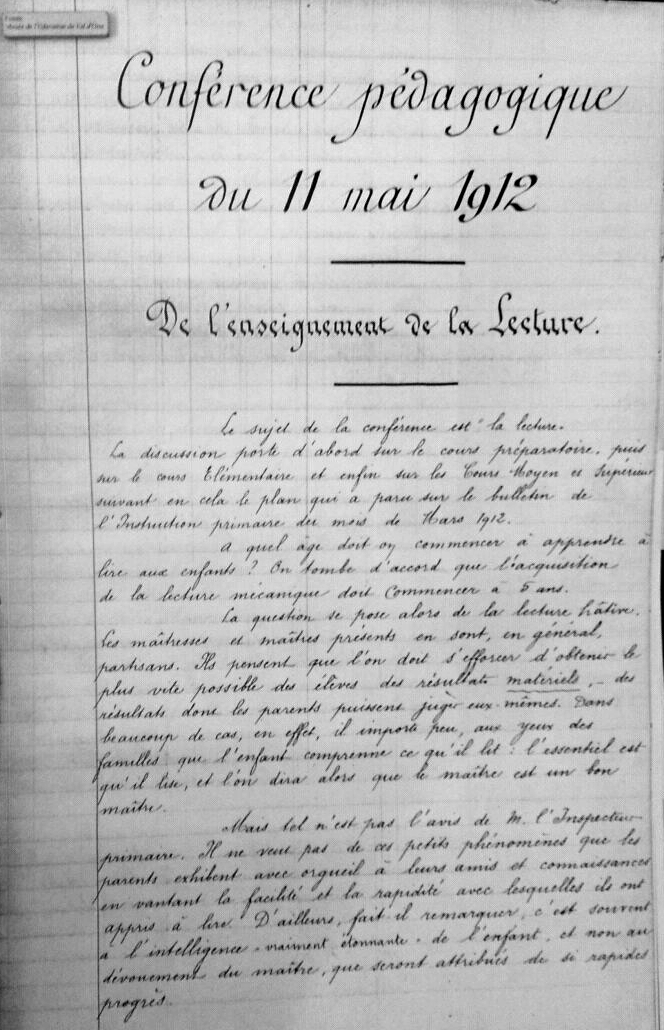 Musée de l'Education du Val d'Oise
Conférence pédagogique
du 11 mai 1912
De l'enseignement de la Lecture.
Le sujet de la conférence est : la lecture.
La discussion porte d'abord sur le cours préparatoire, puis
sur le cours Elémentaire et enfin sur les Cours Moyen et Supérieur
suivant en cela le plan qui a paru sur le bulletin de
l'Instruction primaire du mois de Mars 1912.
A quel âge doit on commencer à apprendre à
lire aux enfants ? On tombe d'accord que l'acquisition
de la lecture mécanique doit commencer à 5 ans.
La question se pose alors de la lecture hâtive.
Les maîtresses et maîtres présents en sont, en général,
partisans. Ils pensent que l'on doit s'efforcer d'obtenir le
plus vite possible des élèves des résultats matériels, - des
résultats dont les parents puissent juger eux-mêmes. Dans
beaucoup de cas, en effet, il importe peu, aux yeux des
familles que l'enfant comprenne ce qu'il lit : l'essentiel est
qu'il lise, et l'on dira alors que le maître est un bon
maître.
Mais tel n'est pas l'avis de M. l'Inspecteur
primaire. Il ne veut pas de ces petits phénomènes que les
parents exhibent avec orgueil à leurs amis et connaissances
en vantant la facilité et la rapidité avec lesquelles ils ont
appris à lire. D'ailleurs, fait-il remarquer, c'est souvent
à l'intelligence "vraiment étonnante" de l'enfant, et non au
dévouement du maître, que seront attribués de si rapides
progrès.